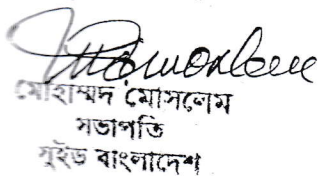 মোহাম্মদ মোসলেম
সভাপতি
সুইড বাংলাদেশ